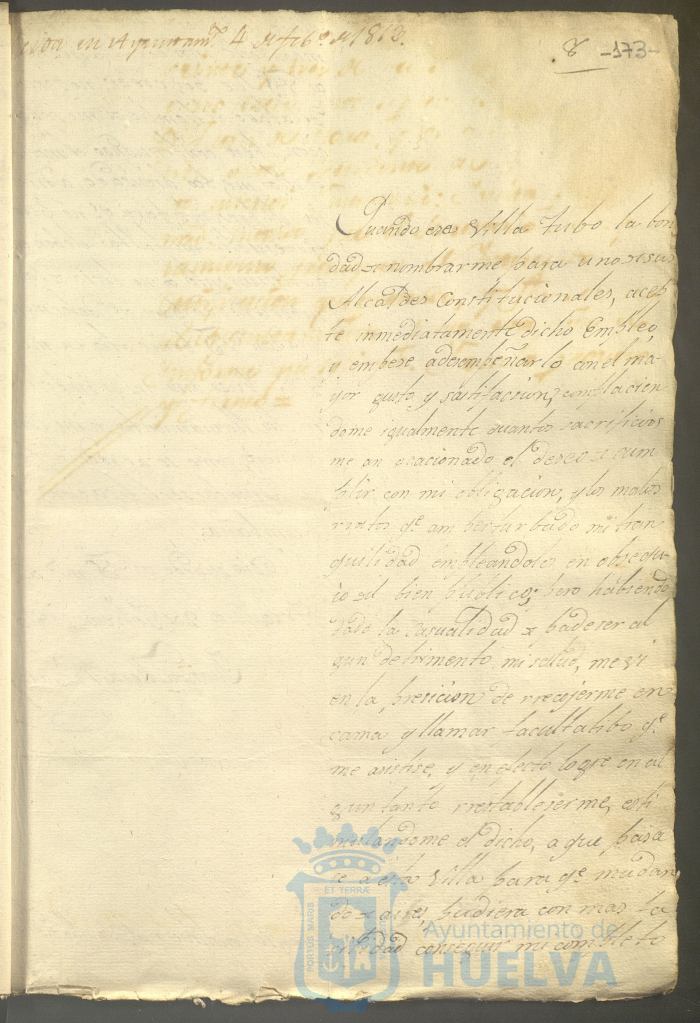 en Ayuntamto 4 de febo de 1813.
8 -173-
Quando esa Villa tubo la bon
dad de nombrarme para uno de sus
Alcaldes Constitucionales, acep
te inmediatamente dicho Empleo,
y empese a desempeñarlo con el ma-
yor gusto y satisfacion, complacien
dome igualmente quantos sacrificios
me an ocacionado el deseo de cum
plir con mi obligacion, y los malos
rratos qe. am perturbado mi tran
quilidad empleandolos en obsequ-
io del bien publico; pero habiendo
dado la casualidad de padeser al
gun detrimento mi salud, me vi
en la presicion de rrecojerme en
cama y llamar facultatibo qe.
me asistise, y en efecto logre en al
gun tanto rrestableserme, esti
mulandome el dicho, a que pasa
se a esta Villa para qe. mudan
do de aires, pudiera con mas fa
cilidad conseguir mi completo
ET TERRÆ
PORTUS MARIS
Ayuntamiento de
HUELVA